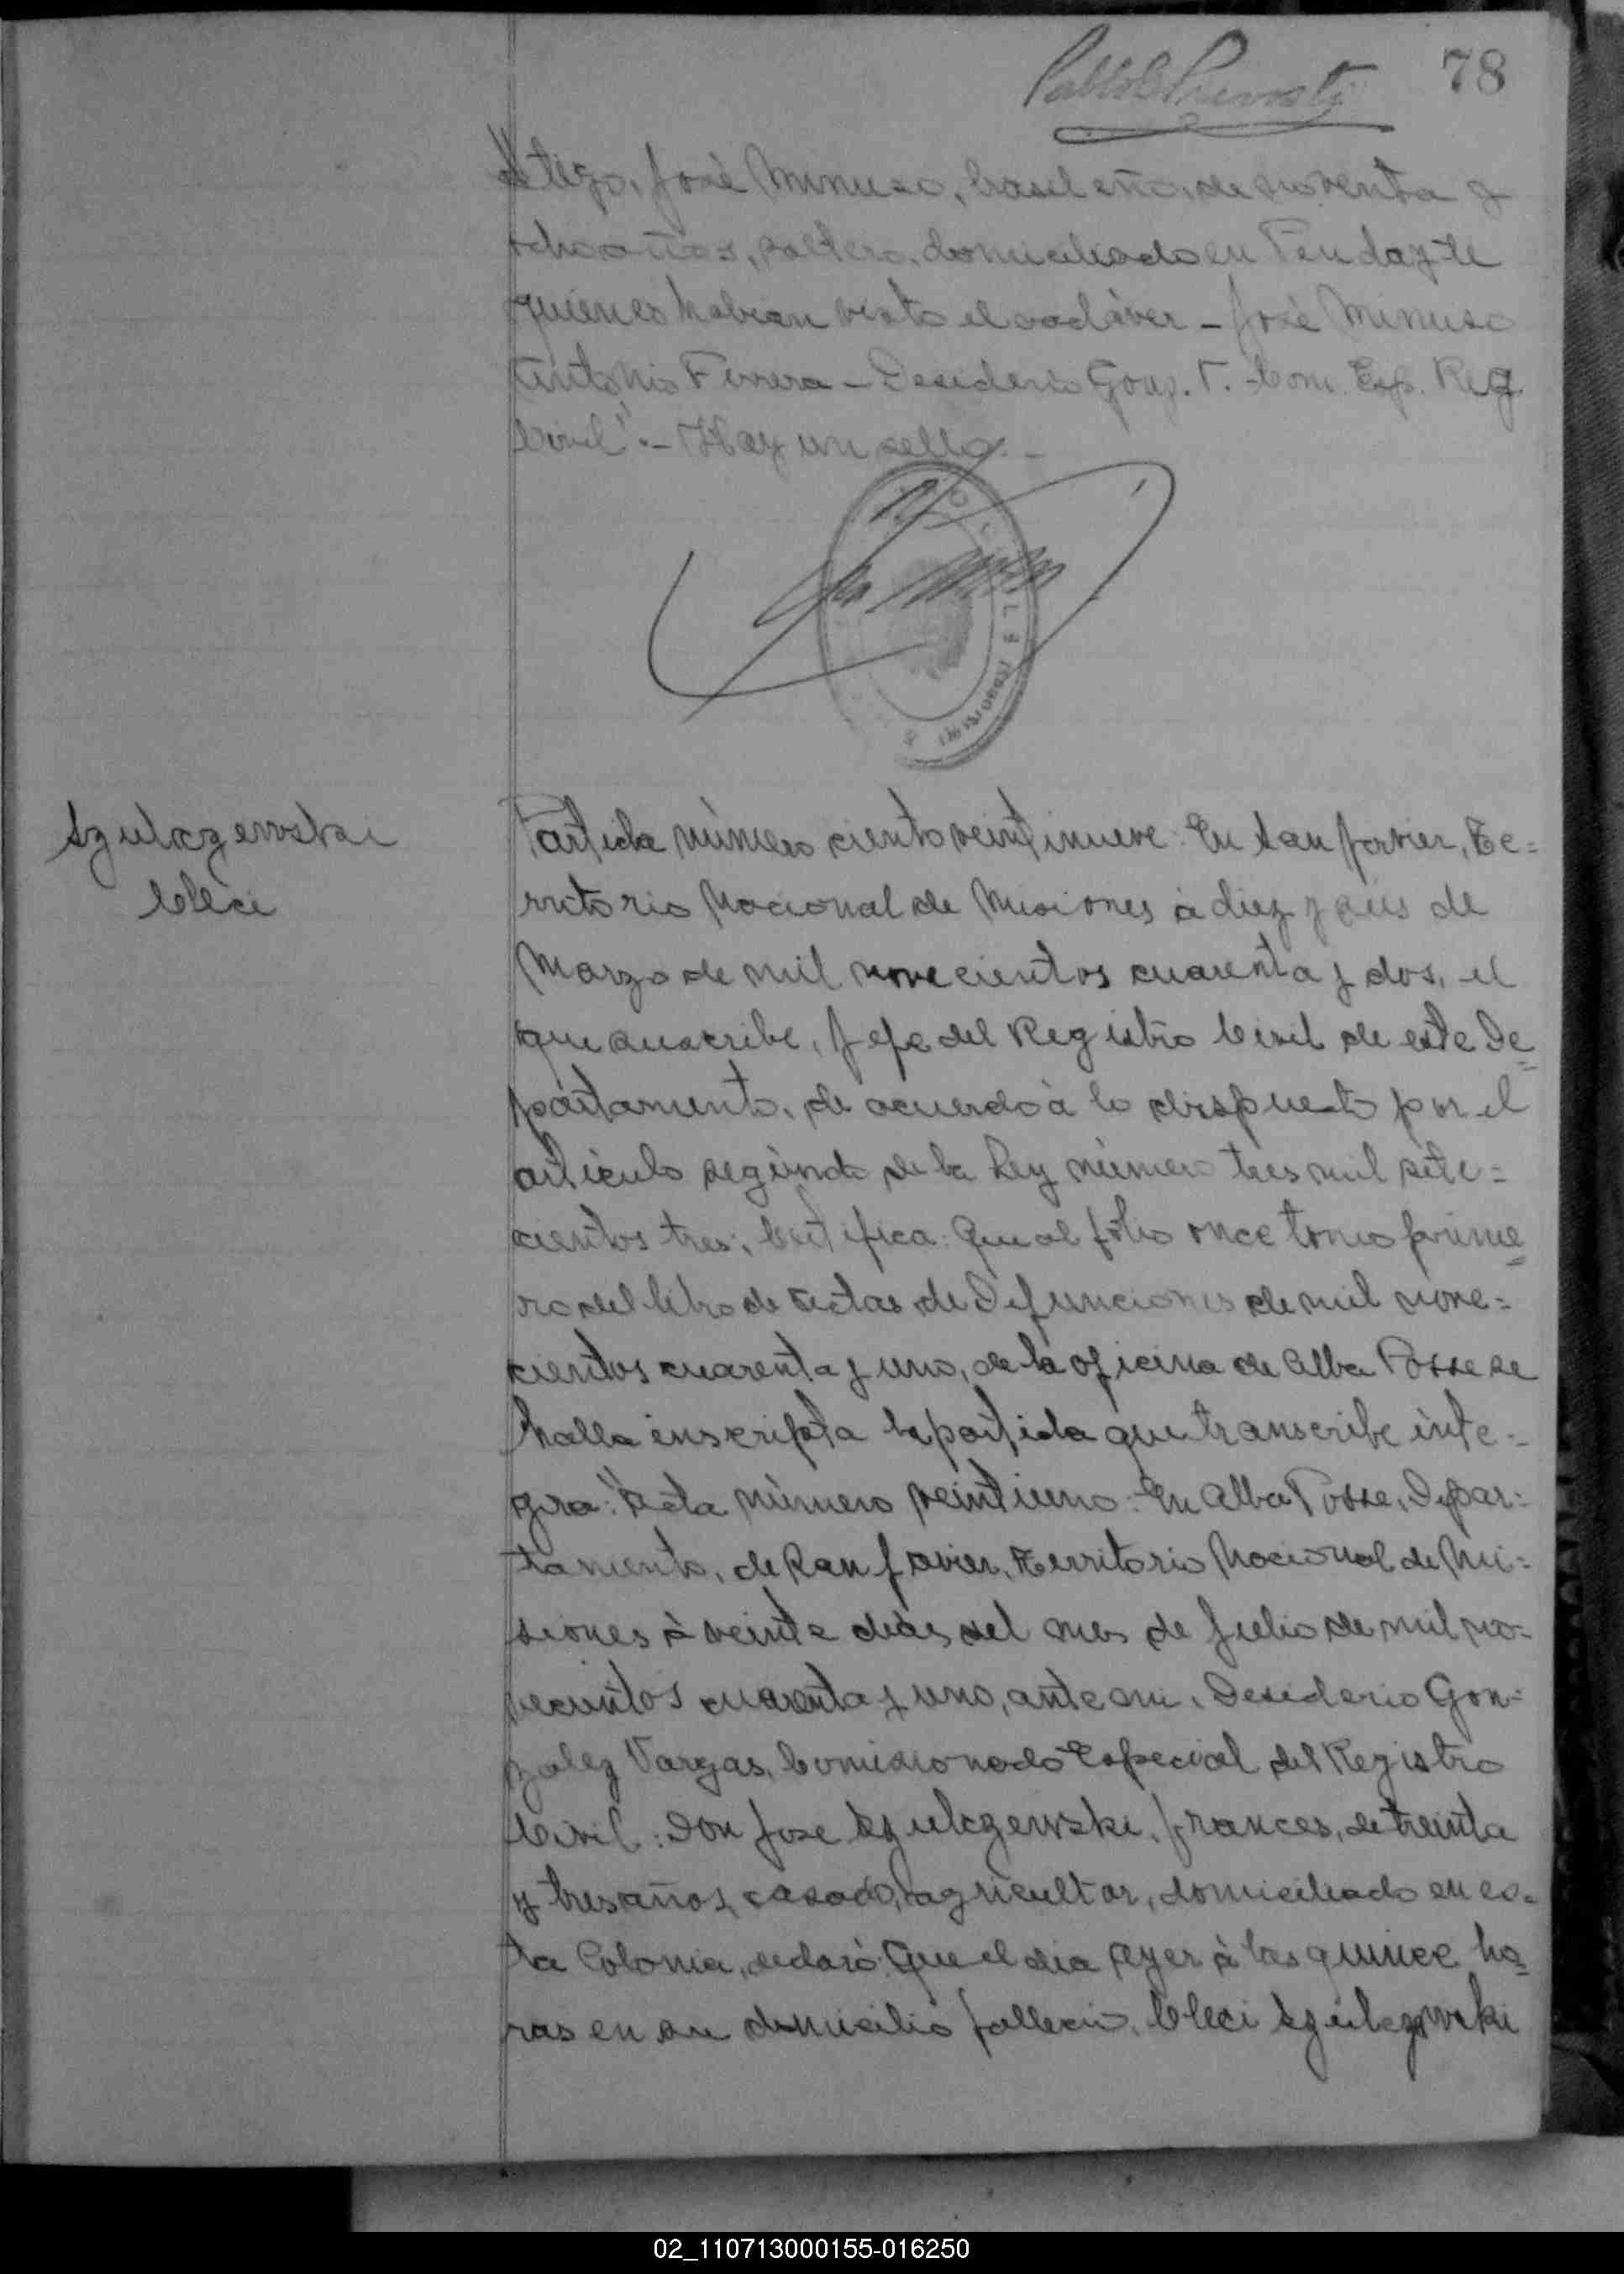 78
tigo, José Minuso, brasileño, de noventa y
ocho años, soltero, domiciliado en
quienes habian visto el cadáver - José Minuso
Antonio Ferrera - Desiderio Gonz. V. - Com. Esp. Reg
Civil". - Hay un sello. -
Szulczewski
Cleci
Partida número ciento veintinueve: En San Javier, Te=
rritorio Nacional de Misiones à diez y seis de
Marzo de mil novecientos cuarenta y dos, el
que suscribe, Jefe del Registro Civil de este De=
partamento, de acuerdo à lo dispuesto por el
artículo segundo de la Ley número tres mil sete=
cientos tres; Certifica: Que al folio once tomo prime=
ro del libro de Actas de Defunciones de mil nove=
cientos cuarenta y uno, de la oficina de Alba Posse se
halla inscripta la partida que transcribe inte=
gra: "Acta número veintiuno: En Alba Posse, Depar=
tamento, de San Javier, Territorio Nacional de Mi=
siones à veinte dias del mes de Julio de mil no=
vecientos cuarenta y uno, ante mi, Desiderio Gon=
zalez Vargas, Comisionado Especial del Registro
Civil: Don Jose Szulczewski, frances, de treinta
y tres años, casado, agricultor, domiciliado en es=
ta Colonia, declaró: Que el dia ayer à las quince ho=
ras en su domicilio falleció, Cleci Szulczewski
02_110713000155-016250